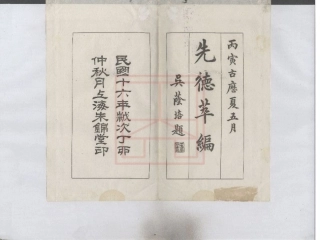 丙寅古曆夏五月
先德萃編
吳蔭培題
民國十六年歲次丁卯
仲秋月上海朱錦堂印